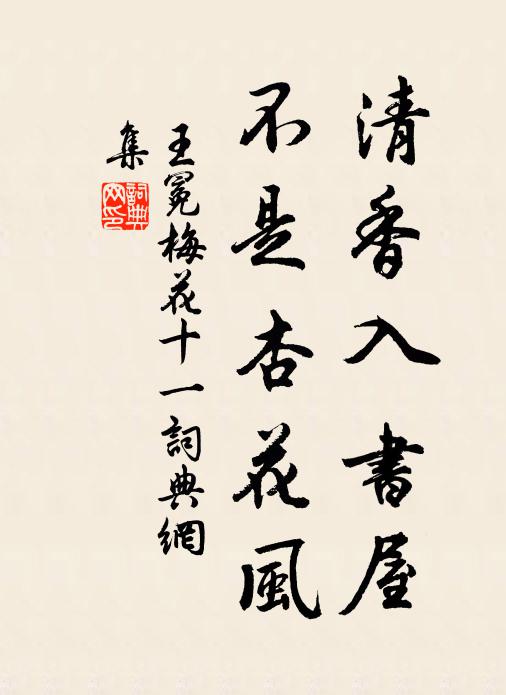 清香入書屋
不是杏花風
王冕梅花十一詞典網
集
詞典網印